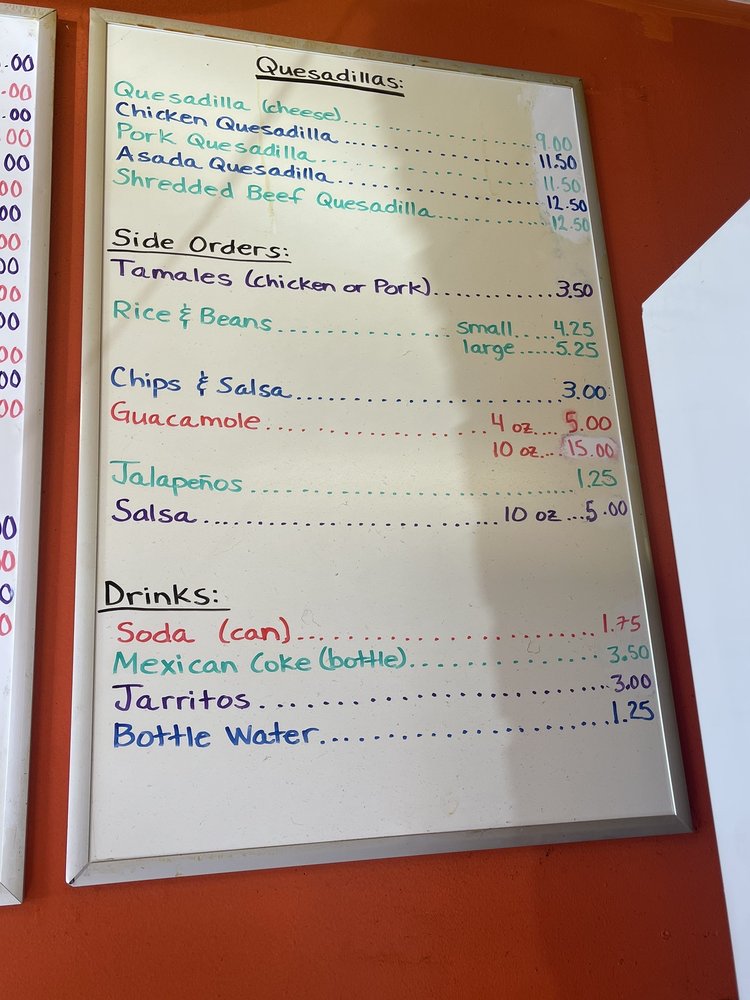 .00
.00
.00
.00
.00
00
00
00
00
00
00
00
00
00
00
00
0
0
Quesadillas:
Quesadilla (cheese)..................... 9.00
Chicken Quesadilla..................... 11.50
Pork Quesadilla..................... 11.50
Asada Quesadilla..................... 12.50
Shredded Beef Quesadilla............ 12.50
Side Orders:
Tamales (chicken or Pork)............ 3.50
Rice & Beans............... small..... 4.25
large.....5.25
Chips & Salsa..................... 3.00
Guacamole..................... 4 oz.... 5.00
10 oz... 15.00
Jalapeños..................... 1.25
Salsa..................... 10 oz...5.00
Drinks:
Soda (can)..................... 1.75
Mexican Coke (bottle)............ 3.50
Jarritos..................... 3.00
Bottle Water..................... 1.25